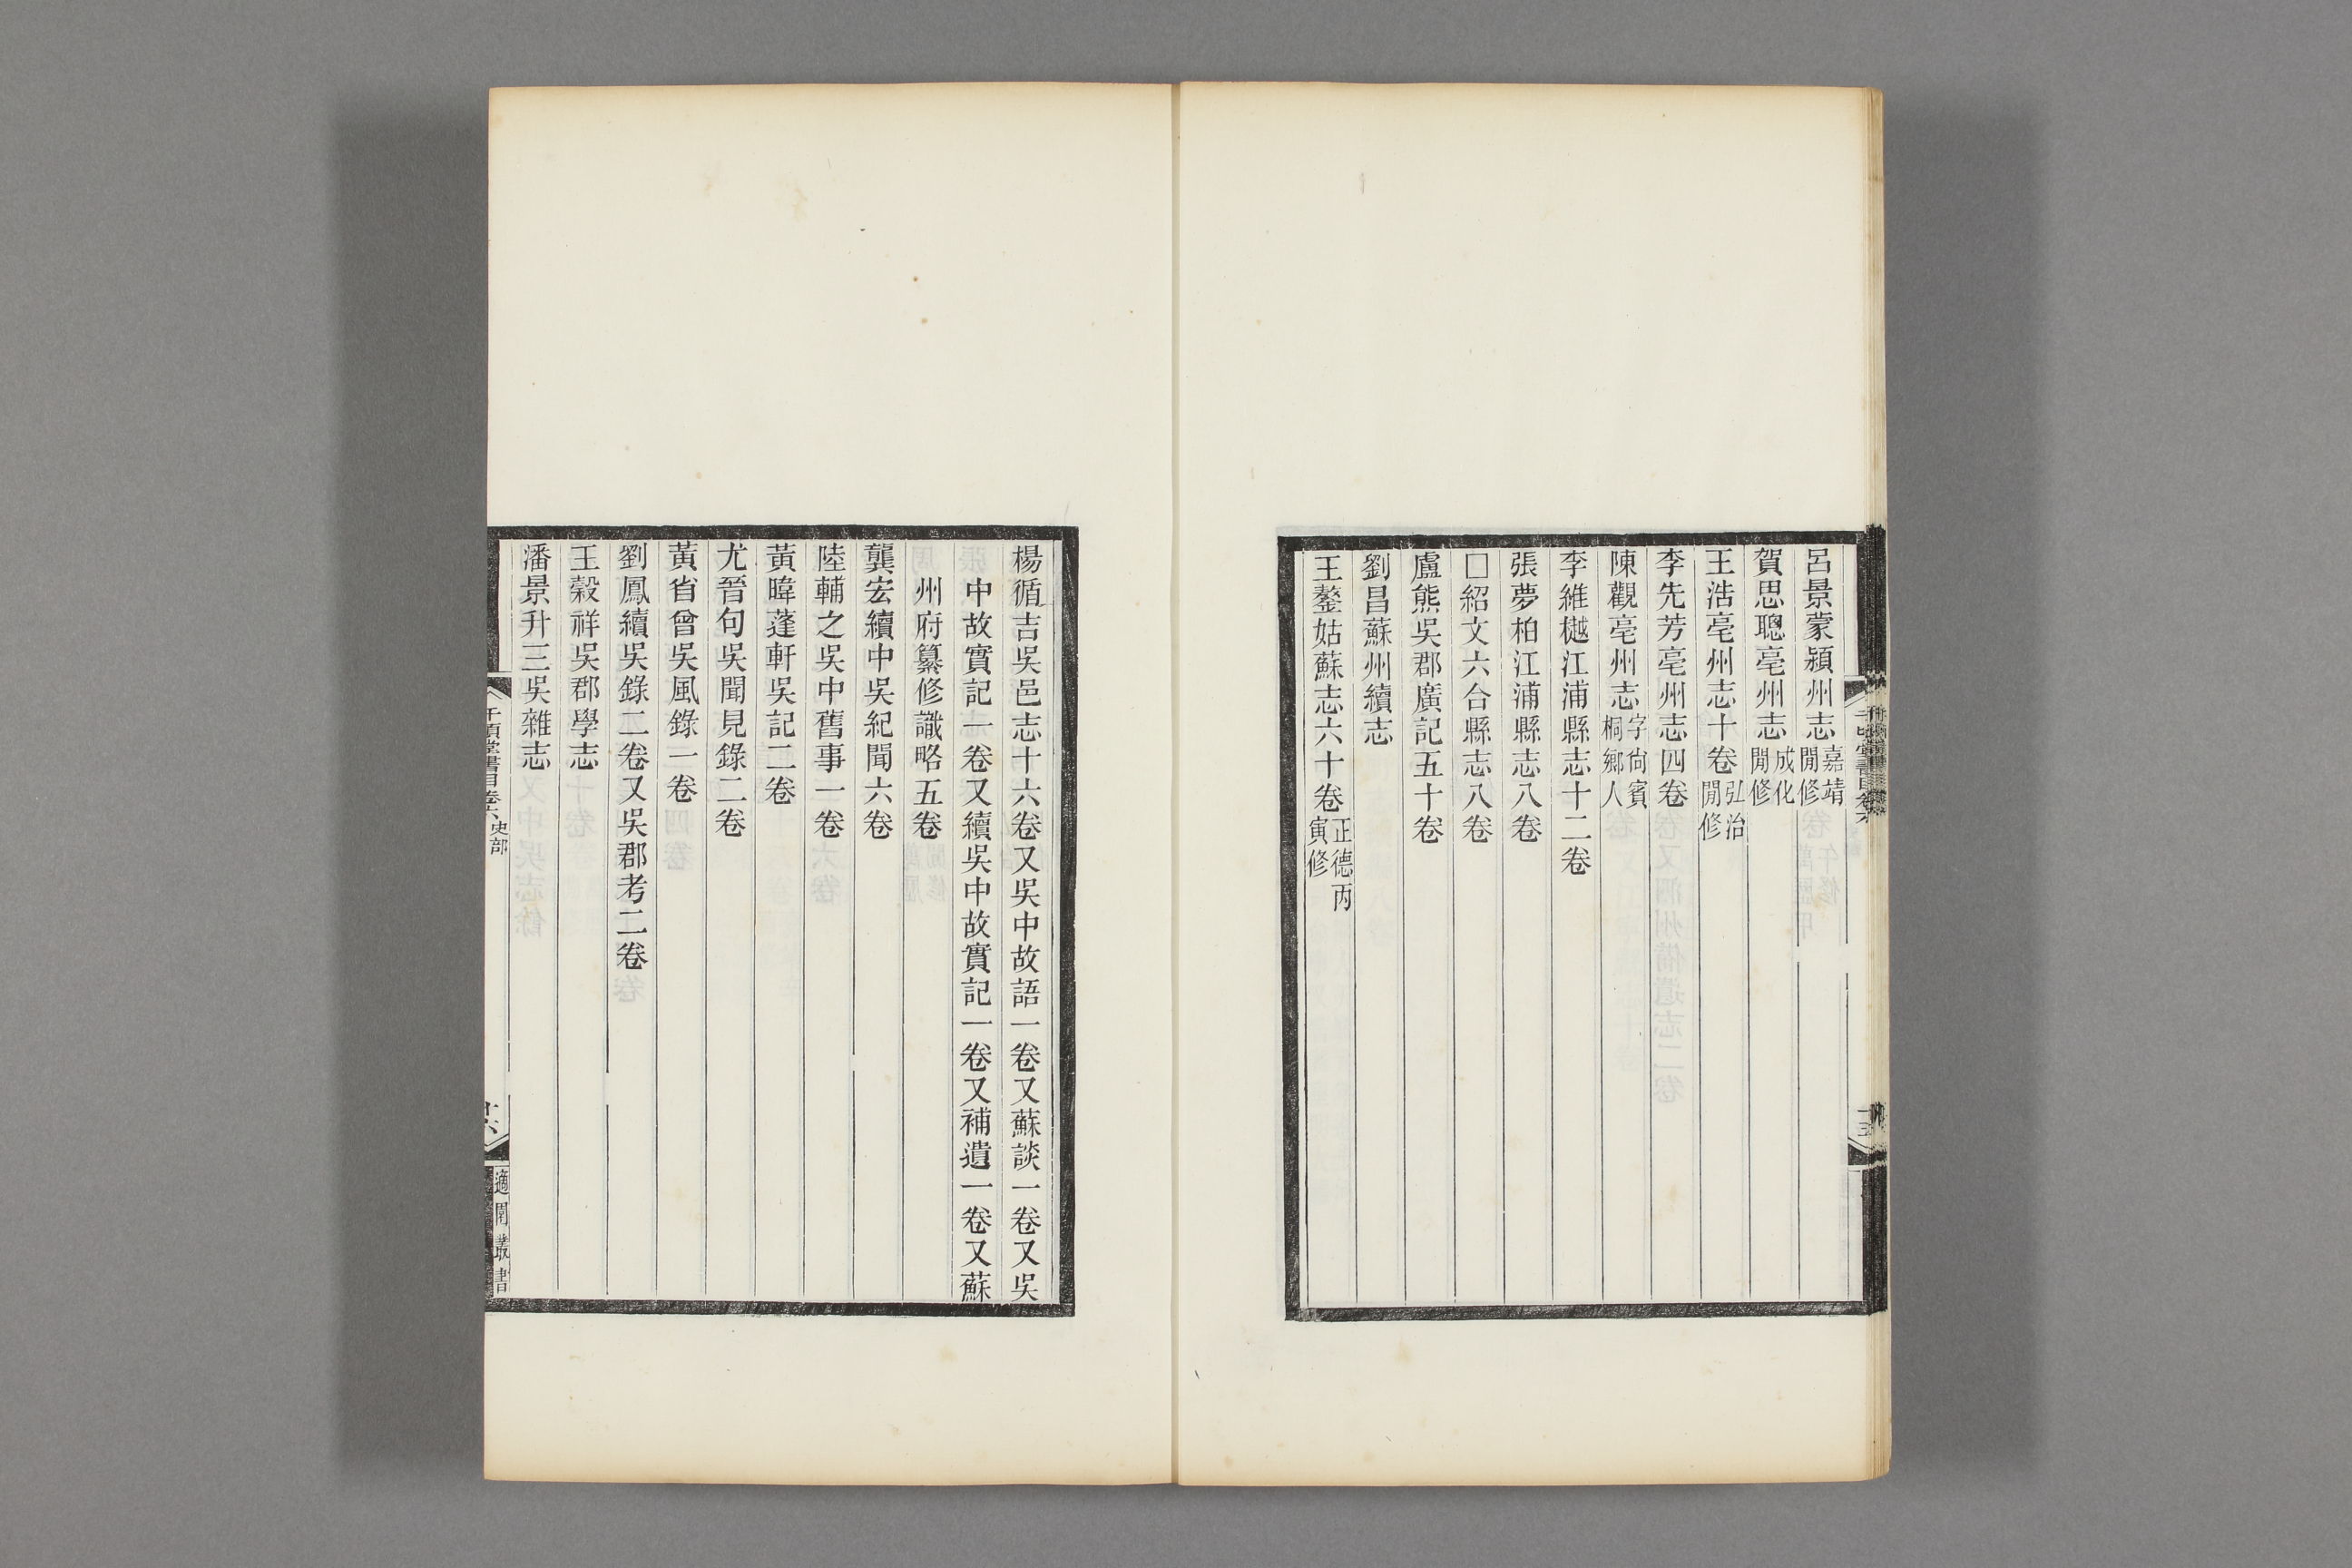 呂景蒙潁州志嘉靖閒修
賀思聰亳州志成化閒修
王浩亳州志十卷弘治閒修
李先芳亳州志四卷
陳觀亳州志字尙賓桐鄉人
李維樾江浦縣志十二卷
張夢柏江浦縣志八卷
□紹文六合縣志八卷
盧熊吳郡廣記五十卷
劉昌蘇州續志
王鏊姑蘇志六十卷正德丙寅修
楊循吉吳邑志十六卷又吳中故語一卷又蘇談一卷又吳
中故實記一卷又續吳中故實記一卷又補遺一卷又蘇
州府纂修識略五卷
龔宏續中吳紀聞六卷
陸輔之吳中舊事一卷
黃暐蓬軒吳記二卷
尤晉句吳聞見錄二卷
黃省曾吳風錄一卷
劉鳳續吳錄二卷又吳郡考二卷
王穀祥吳郡學志
潘景升三吳雜志
千頃堂書目卷六 史部
十六
適園叢書